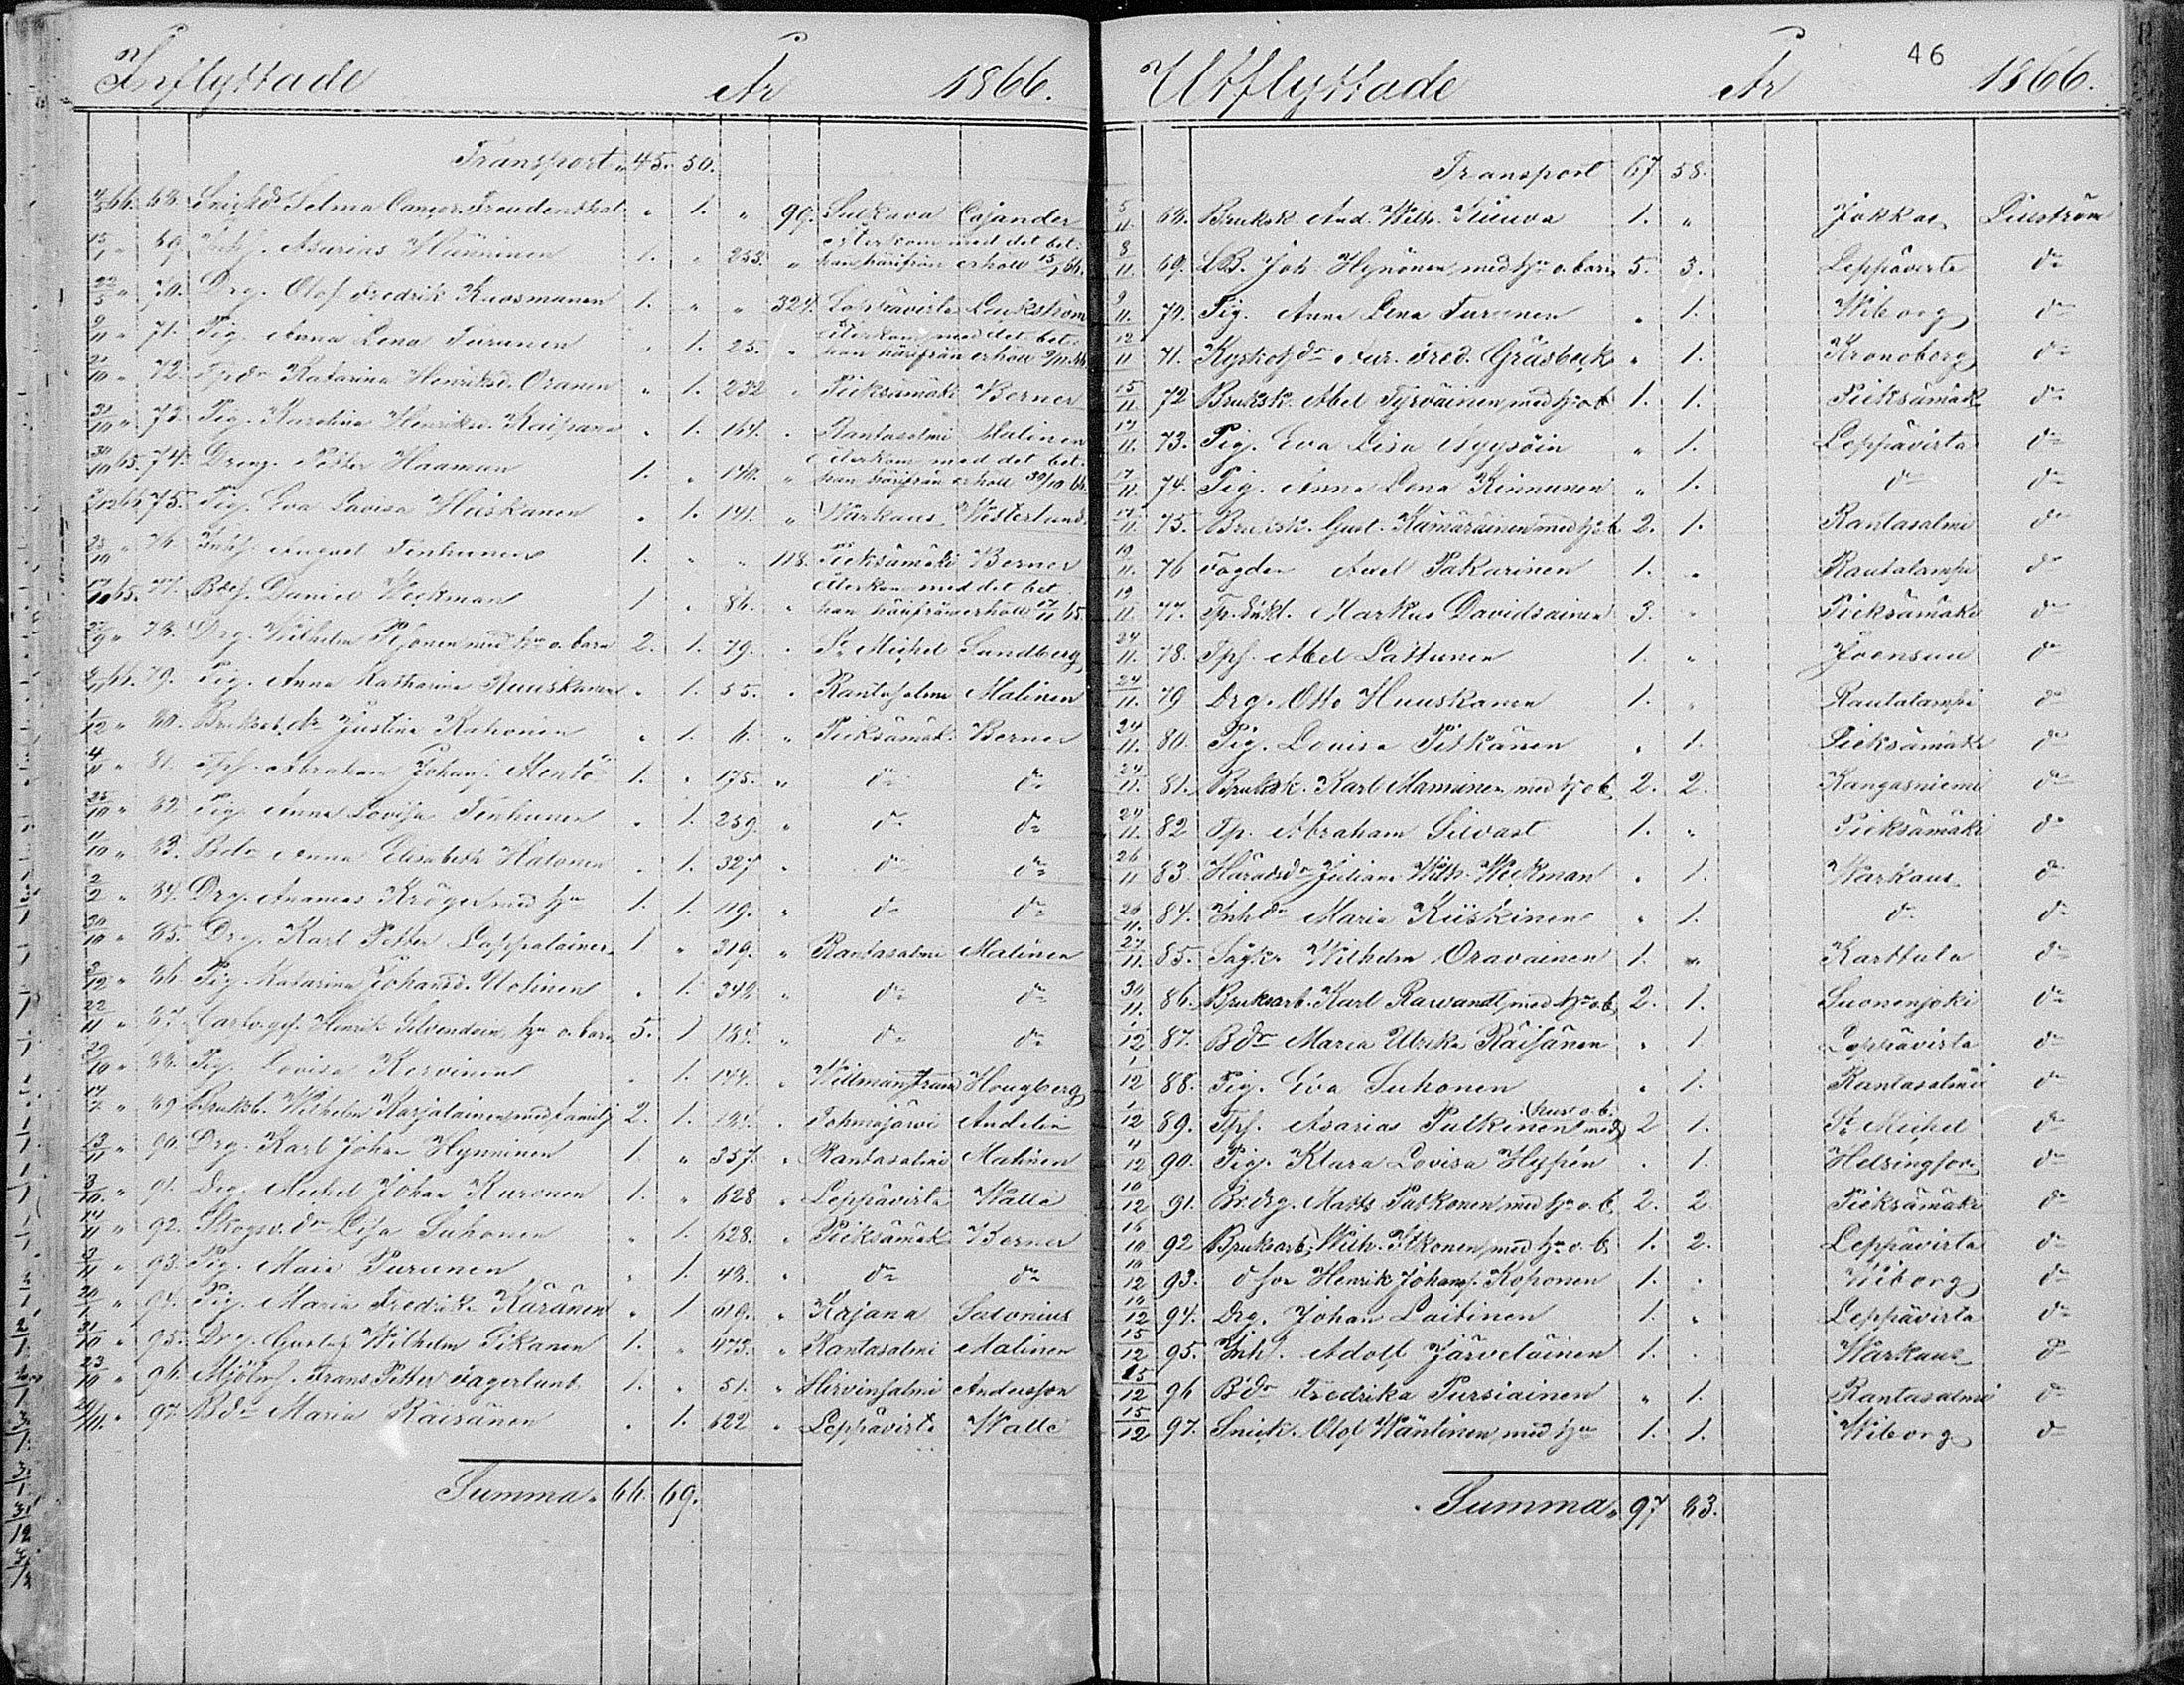 Inflyttade År 1866.
Transport 45. 50.
4/5 66. 68. Snickdr Selma Freudenthal " 1. " 90. Sulkava Cajander
15/1 " 69. Inhs. Asarias Hänninen 1. " 253. " återkom med det bet.
han härifrån erhöll 15/1 66.
22/5 " 70. Drg. Olof Fredrik Kuosmanen 1. " " 324. Leppävirta
9/11 " 71. Pig. Anna Lena Turunen " 1. 25. " återkom med det bet.
han härifrån erhöll 9/11 66.
21/10 " 72. Tpdr Katarina Henriksd. Oranen " 1. 232 " Pieksämäki Berner
31/10 " 73. Pig. Karolina Henriksd. " 1. 164. " Rantasalmi Malinen
30/10 65. 74. Dreng. Petter Haaman 1. " 140. " återkom med det bet.
han härifrån erhöll 30/10 65.
66 75. Pig. Eva Lovisa Hiiskanen " 1. 141. " Warkaus Westerlund
25/10 " 76. Inhs. August Tenhunen 1. " " 118. Pieksämäki Berner
17/11 65. 77. Bds. Daniel Weckman 1 " 86. " återkom med det bet.
han härifrån erhöll 17/11 65.
22/9 " 78. Drg. Wilhelm med hu o. barn 2. 1. 79. " St Michel Sandberg
66. 79. Pig. Anna Katharina Ruuskanen " 1. 55. " Rantasalmi Malinen
1/12 " 80. dr Justina Kahonen " 1. 6. " Pieksämäk. Berner
4/11 " 81. Tps. Abraham Johans. Mentö 1. " 175. " do do
25/10 " 82. Pig. Anna Lovisa Tenhunen " 1. 259. " do do
11/10 " 83. Bdr Anna Elisabeth Halonen " 1. 327 " do do
2/2 " 84. Drg. Ananias Kröger med hu 1. 1. 119. " do do
30/10 " 85. Drg. Karl Petter Lappalainen 1 " 319. " Rantasalmi Malinen
3/12 " 86. Pig. Katarina Johansd. Utolinen " 1. 342 " do do
22/11 " 87. Henrik hu o. barn 5. 1 " do do
29/10 " 88. Pig. Lovisa Korvinen " 1. 144. " Willmanstrand Hougberg
14/7 " 89 Bruksb. Wilhelm Karjalainen med familj 2. 1. " Tohmajärvi Andelin
13/11 " 90. Drg. Karl Johan Hynninen 1 " 357. " Rantasalmi Malinen
3/10 " 91. Drg. Michel Johan Kuronen 1. " 628 " Leppävirta Walle
14/11 " 92. Skogsv. dr Lisa Suhonen " 1. 628. " Pieksämäk. Berner
3/11 " 93. Pig. Maria Purunen " 1. 48. " do do
94. Pig. Maria Fredrika Käränen " 1 " Kajana
31/10 " 95. Drg. Gustaf Wilhelm Pikanen 1. " 473. " Rantasalmi Malinen
23/10 " 96. Mjöln. Frans Petter Fagerlund 1. " 51. " Hirvinsalmi Andersson
97. Bdr Maria Räisänen " 1. 622 " Leppävirta Walle
Summa. 66. 69.
46
Utflyttade År 1866.
Transport 67 58.
5/11. 68. Bruksk. And. Wilh. 1. " Jokkas
8/11. 69. LB. Joh. Hynönen med hu o. barn 5. 3. Leppävirta do
9/11. 70. Pig. Anna Lena Turunen " 1. Wiborg do
12/11 71. dr Aur. Fred. Gräsbeck " 1. Kronoborg do
15/11. 72 Bruksk. Abel Tyrväinen med h. o. b. 1. 1. Pieksämäk. do
17/11. 73. Pig. Eva Lisa " 1. Leppävirta do
17/11. 74. Pig. Anna Lena Kinnunen " 1. do do
17/11. 75. Bruksk. Gust. Kämäräinen med h. o. b. 2. 1. Rantasalmi do
19/11. 76 Fogden Axel Pakarinen 1. " Rautalampi do
19/11. 77. Tp. Enkl. Markus Davidsainen 3. " Pieksämäki do
24/11. 78. Tps. Abel Lättunen 1. " Joensuu do
24/11. 79 Drg. Otto Huuskanen 1. " Rautalampi do
24/11. 80. Pig. Lovisa Pitkänen " 1. Pieksämäki do
24/11. 81. Bruksk. Karl Manninen med h. o. b. 2. 2. Kangasniemi do
24/11. 82 Tp. Abraham Silvast 1. " Pieksämäki do
26/11 83. Häradsdr Juliana Wilh. Weckman " 1. Warkaus do
26/11. 84. Inhdr Maria Kiiskinen " 1. do do
27/11. 85. Sågk. Wilhelm Oravainen 1. " Karttula do
30/11. 86. Bruksarb. Karl Rawandt med hu o. b. 2. 1. Suonenjoki do
1/12 87. Bdr Maria Ulrika Räisänen " 1 Leppävirta do
1/12 88. Pig. Eva Suhonen " 1. Rantasalmi do
1/12 89. Tps. Asarias Pulkinen med hust. o. b. 2 1. St Michel do
4/12 90. Pig. Klara Lovisa Hypén " 1. Helsingfors do
10/12 91. Br.drg. Matts Putkonen med hu o. b. 2. 2. Pieksämäki do
16/10 92 Bruksarb. Wilh. Itkonen med hu o. b. 1. 2. Leppävirta do
10/12 93. Henrik Johans. Koponen 1. " Wiborg do
14/12 94. Drg. Johan Laitinen 1. " Leppävirta do
15/12 95. Inh. Adolf Järveläinen 1. " Warkaus do
15/12 96 Bdr Fredrika Pursiainen " 1. Rantasalmi do
15/12 97. Snick. Olof Wäntinen med hu 1. 1. Wiborg do
Summa. 97 83.